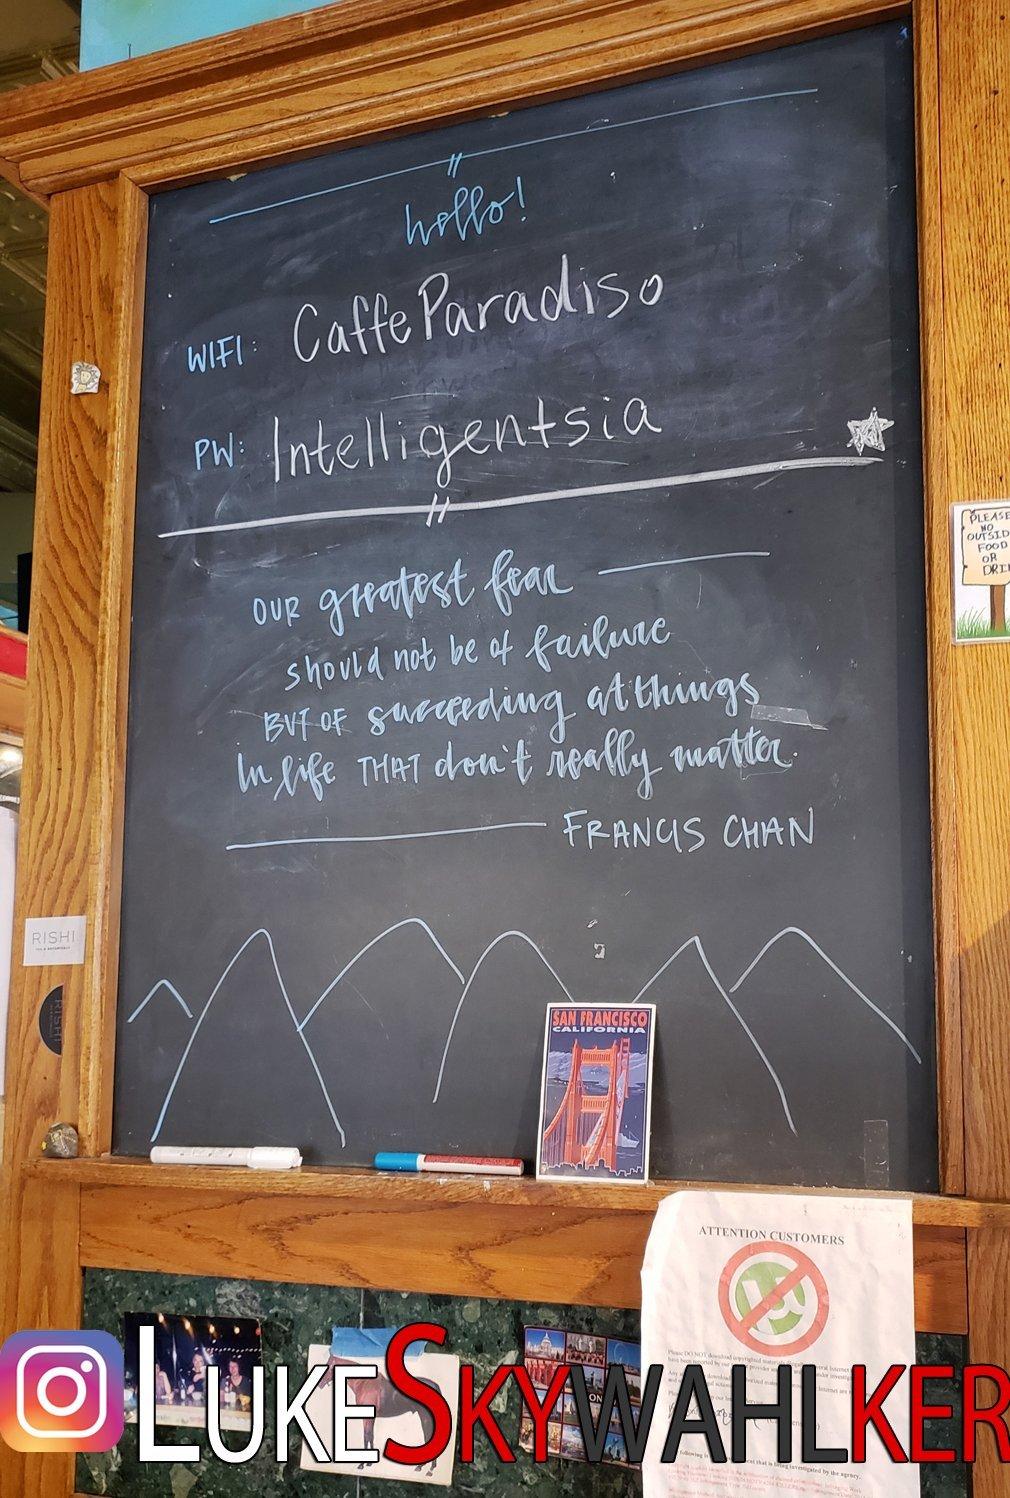 hello!
WIFI: Caffe Paradiso
PW: Intelligentsia
OUR greatest fear
should not be of failure
BUT OF succeeding at things
in life THAT don't really matter.
FRANCIS CHAN
PLEASE
NO
OUTSID
FOOD
OR
DRI
RISHI
RISHI
SAN FRANCISCO
CALIFORNIA
ATTENTION CUSTOMERS
Please DO NOT download copyrighted materials
LUKESKYWAHLKER